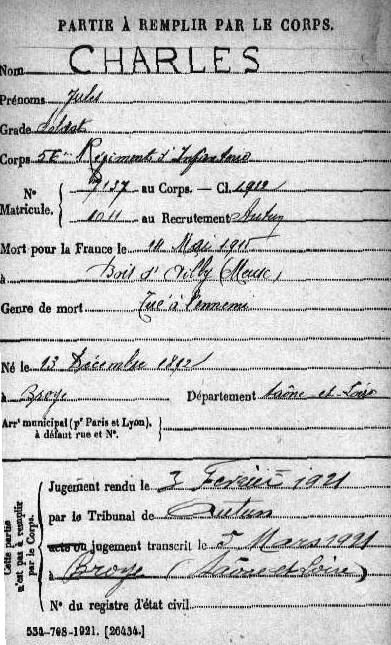 PARTIE À REMPLIR PAR LE CORPS.
Nom CHARLES
Prénoms Jules
Grade Soldat
Corps 56e Régiment d'Infanterie
N° Matricule. { 7137 au Corps. — Cl. 1912
1011 au Recrutement Autun
Mort pour la France le 14 Mai 1915
à Bois d'Ailly (Meuse)
Genre de mort Tué à l'ennemi
Né le 13 Décembre 1892
à Broye Département Saône-et-Loire
Arrt municipal (pr Paris et Lyon), à défaut rue et N°.
Cette partie n'est pas à remplir par le Corps.
Jugement rendu le 3 Février 1921
par le Tribunal de Autun
acte ou jugement transcrit le 5 Mars 1921
à Broye (Saône et Loire)
N° du registre d'état civil
534-708-1921. [26434.]